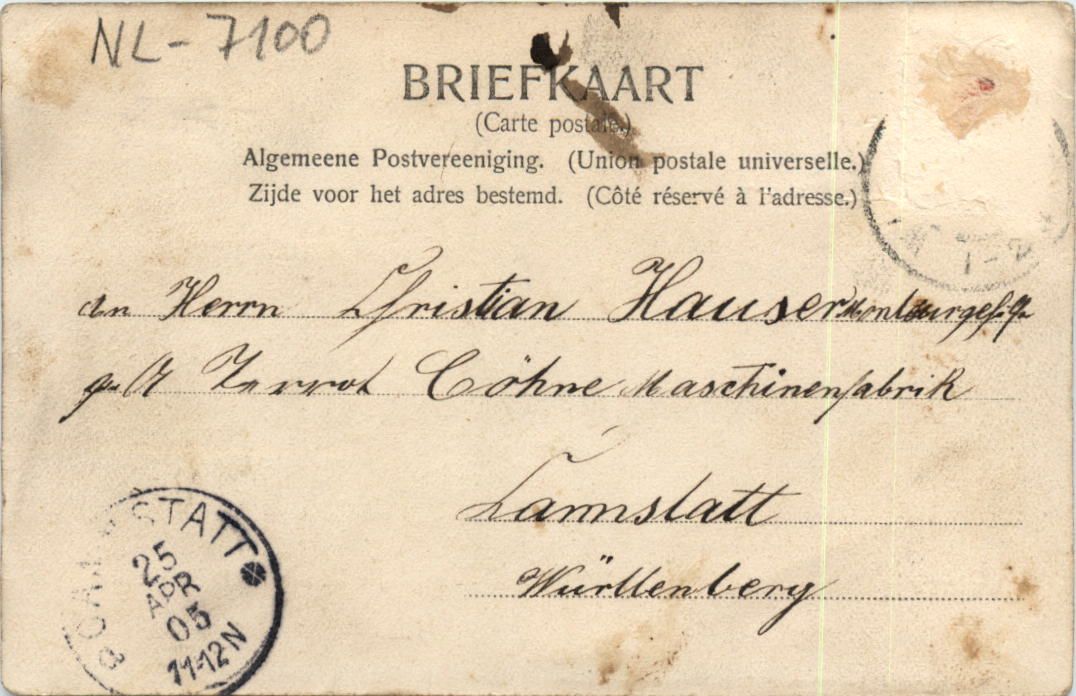 NL-7100
BRIEFKAART
(Carte postale.)
Algemeene Postvereeniging. (Union postale universelle.)
Zijde voor het adres bestemd. (Côté réservé à l'adresse.)
an Herrn Christian Hauser
Terrot Söhne Maschinenfabrik
Cannstatt
Württenberg
CANNSTATT
25
APR
05
11-12N